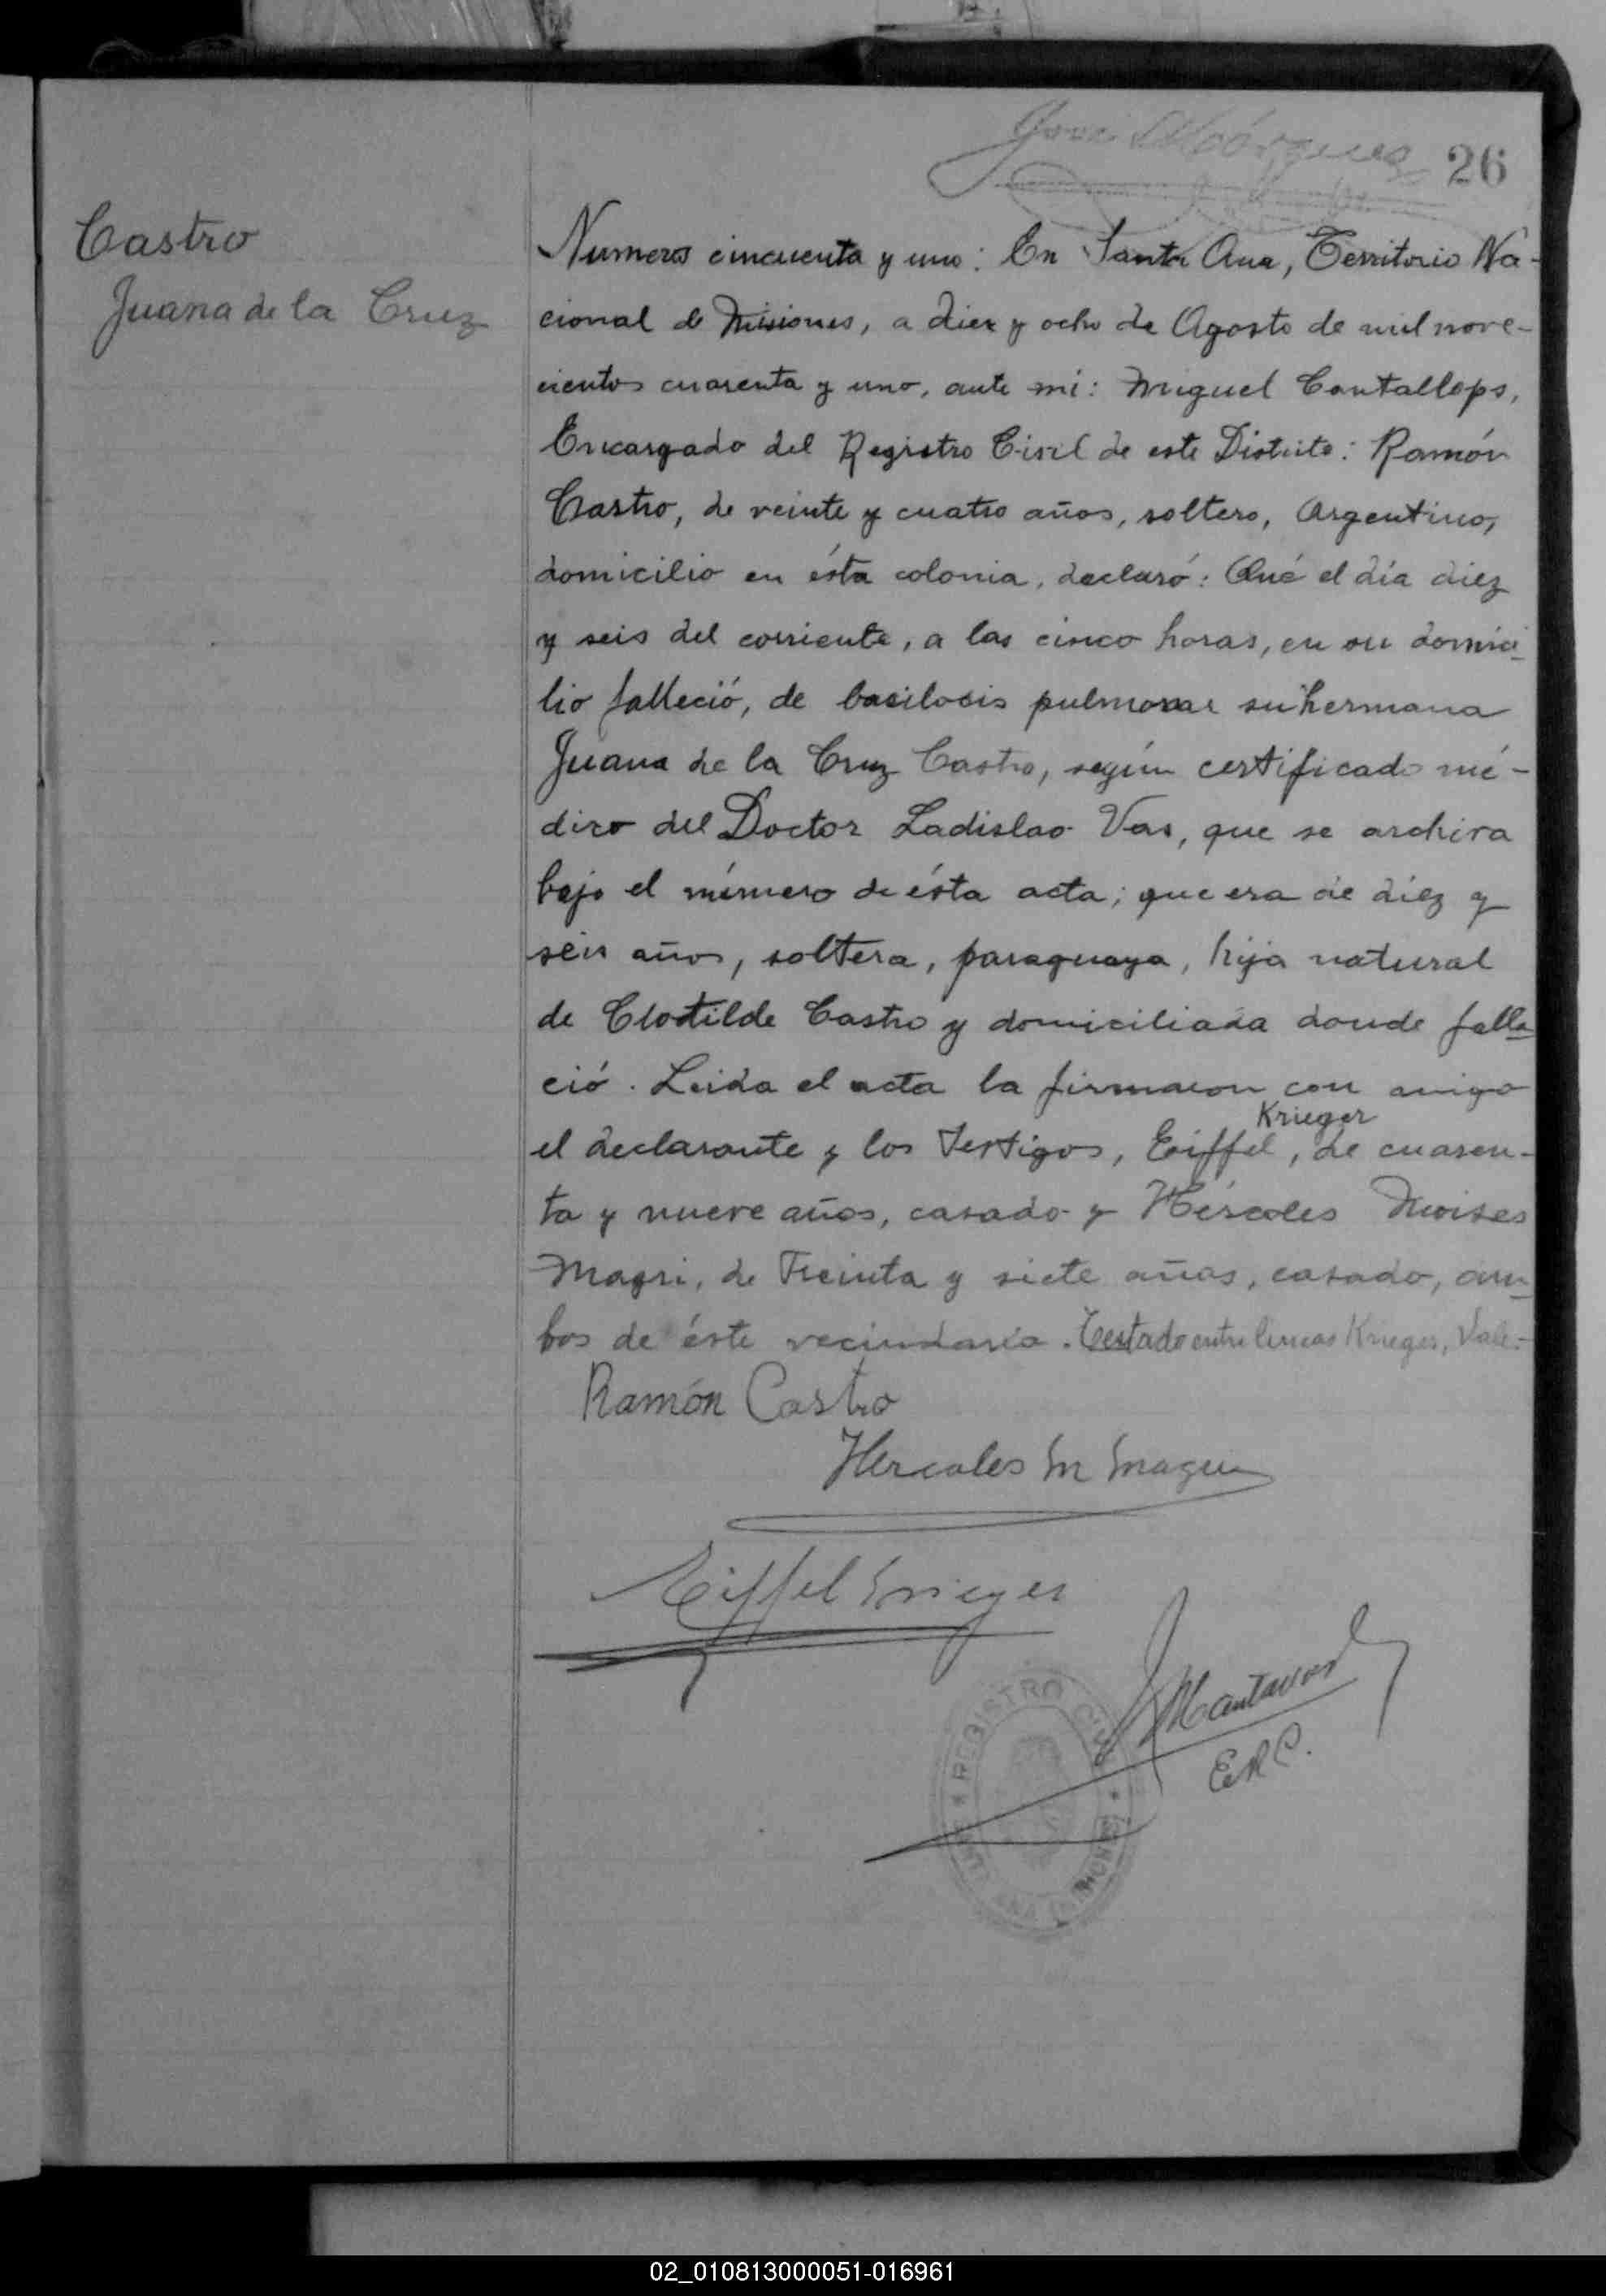 26
Castro
Juana de la Cruz
Numeros cincuenta y uno: En Santa Ana, Territorio Na-
cional de Misiones, a diez y ocho de Agosto de mil nove-
cientos cuarenta y uno, ante mi: Miguel Cantallops,
Encargado del Registro Civil de este Distrito: Ramón
Castro, de veinte y cuatro años, soltero, Argentino,
domicilio en ésta colonia, declaró: Qué el día diez
y seis del corriente, a las cinco horas, en su domici-
lio falleció, de bacilosis pulmonar su hermana
Juana de la Cruz Castro, según certificado mé-
dico del Doctor Ladislao Vas, que se archiva
bajo el número de ésta acta; que era de diez y
seis años, soltera, paraguaya, hija natural
de Clotilde Castro y domiciliada donde falle-
ció. Leida el acta la firmaron con migo
Krieger
el declarante y los testigos, Eiffel, de cuaren-
ta y nueve años, casado y Hércoles Moises
Magri, de treinta y siete años, casado, am-
bos de éste vecindario. Testado entre lineas Krieger, Vale.-
Ramón Castro
Hercoles M Magri
Eiffel Krieger
E.R.C.
REGISTRO CIVIL
02_010813000051-016961